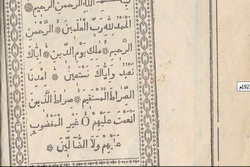 الله الرحمن الرحيم
الحمد لله رب العلمين الرحمن
الرحيم ملك يوم الدين اياك
نعبد واياك نستعين اهدنا
الصراط المستقيم صراط الذين
انعمت عليهم غير المغضوب
عليهم ولا الضالين